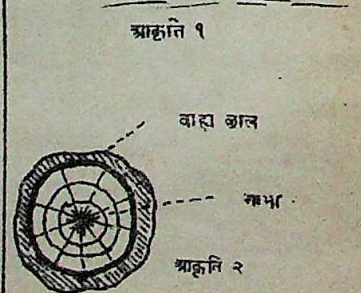 आकृति १
बाह्य छाल
आकृति २